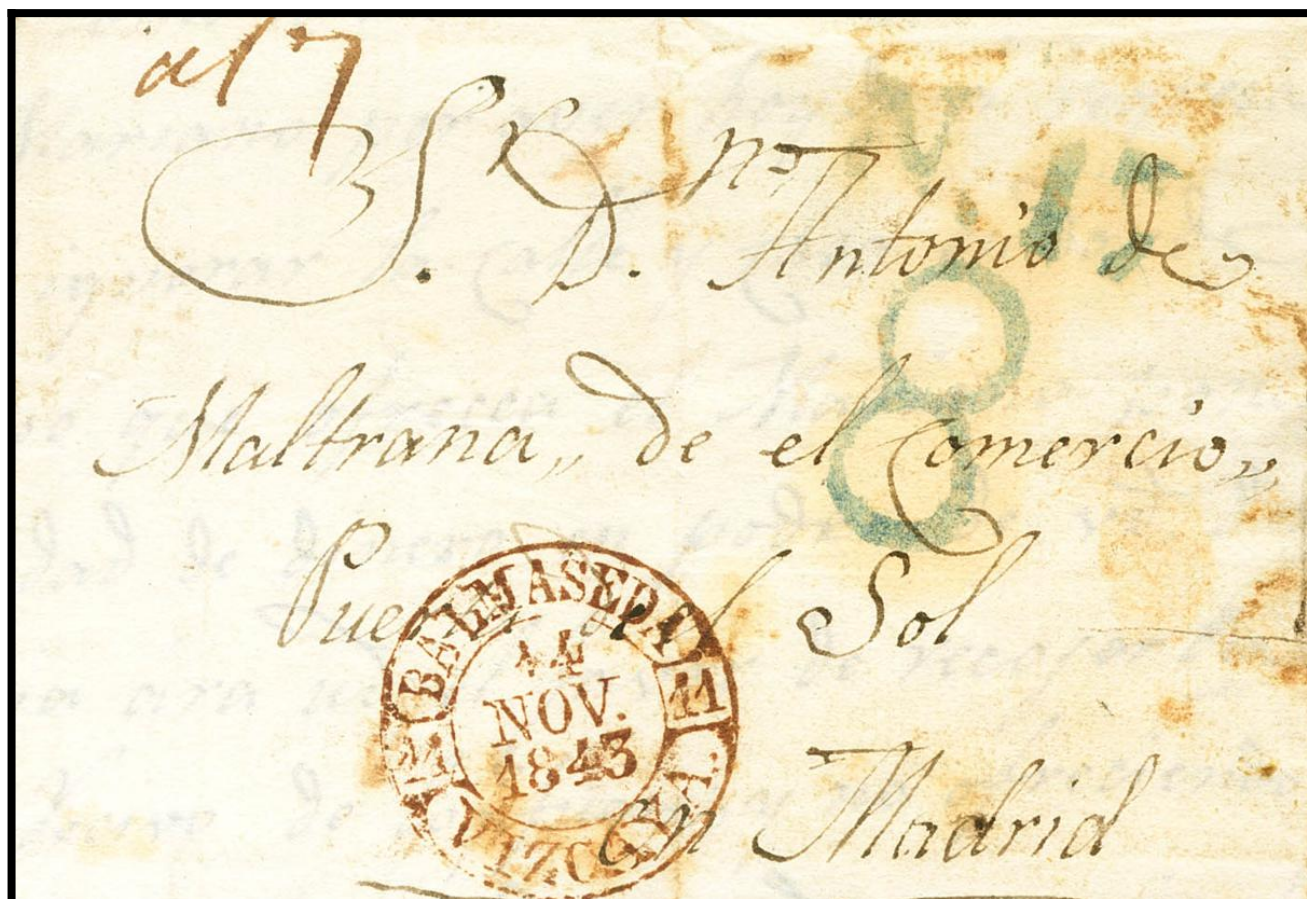 al 7
S.R D.n Antonio de
Maltrana,, de el Comercio,,
Puerta del Sol
en Madrid
8
BALMASEDA
14
NOV.
1843
11
11
VIZCAYA.